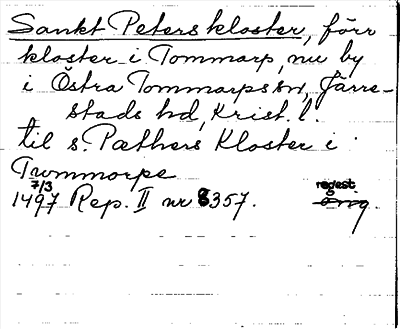 Sankt Peters kloster, förr
kloster i Tommarp, nu by
i Östra Tommarps sn, Järre-
stads hd, Krist. l.
til s. Pæthers Kloster i
Trommorpe
7/3 regest
1497 Rep. II nr 8357. orig.